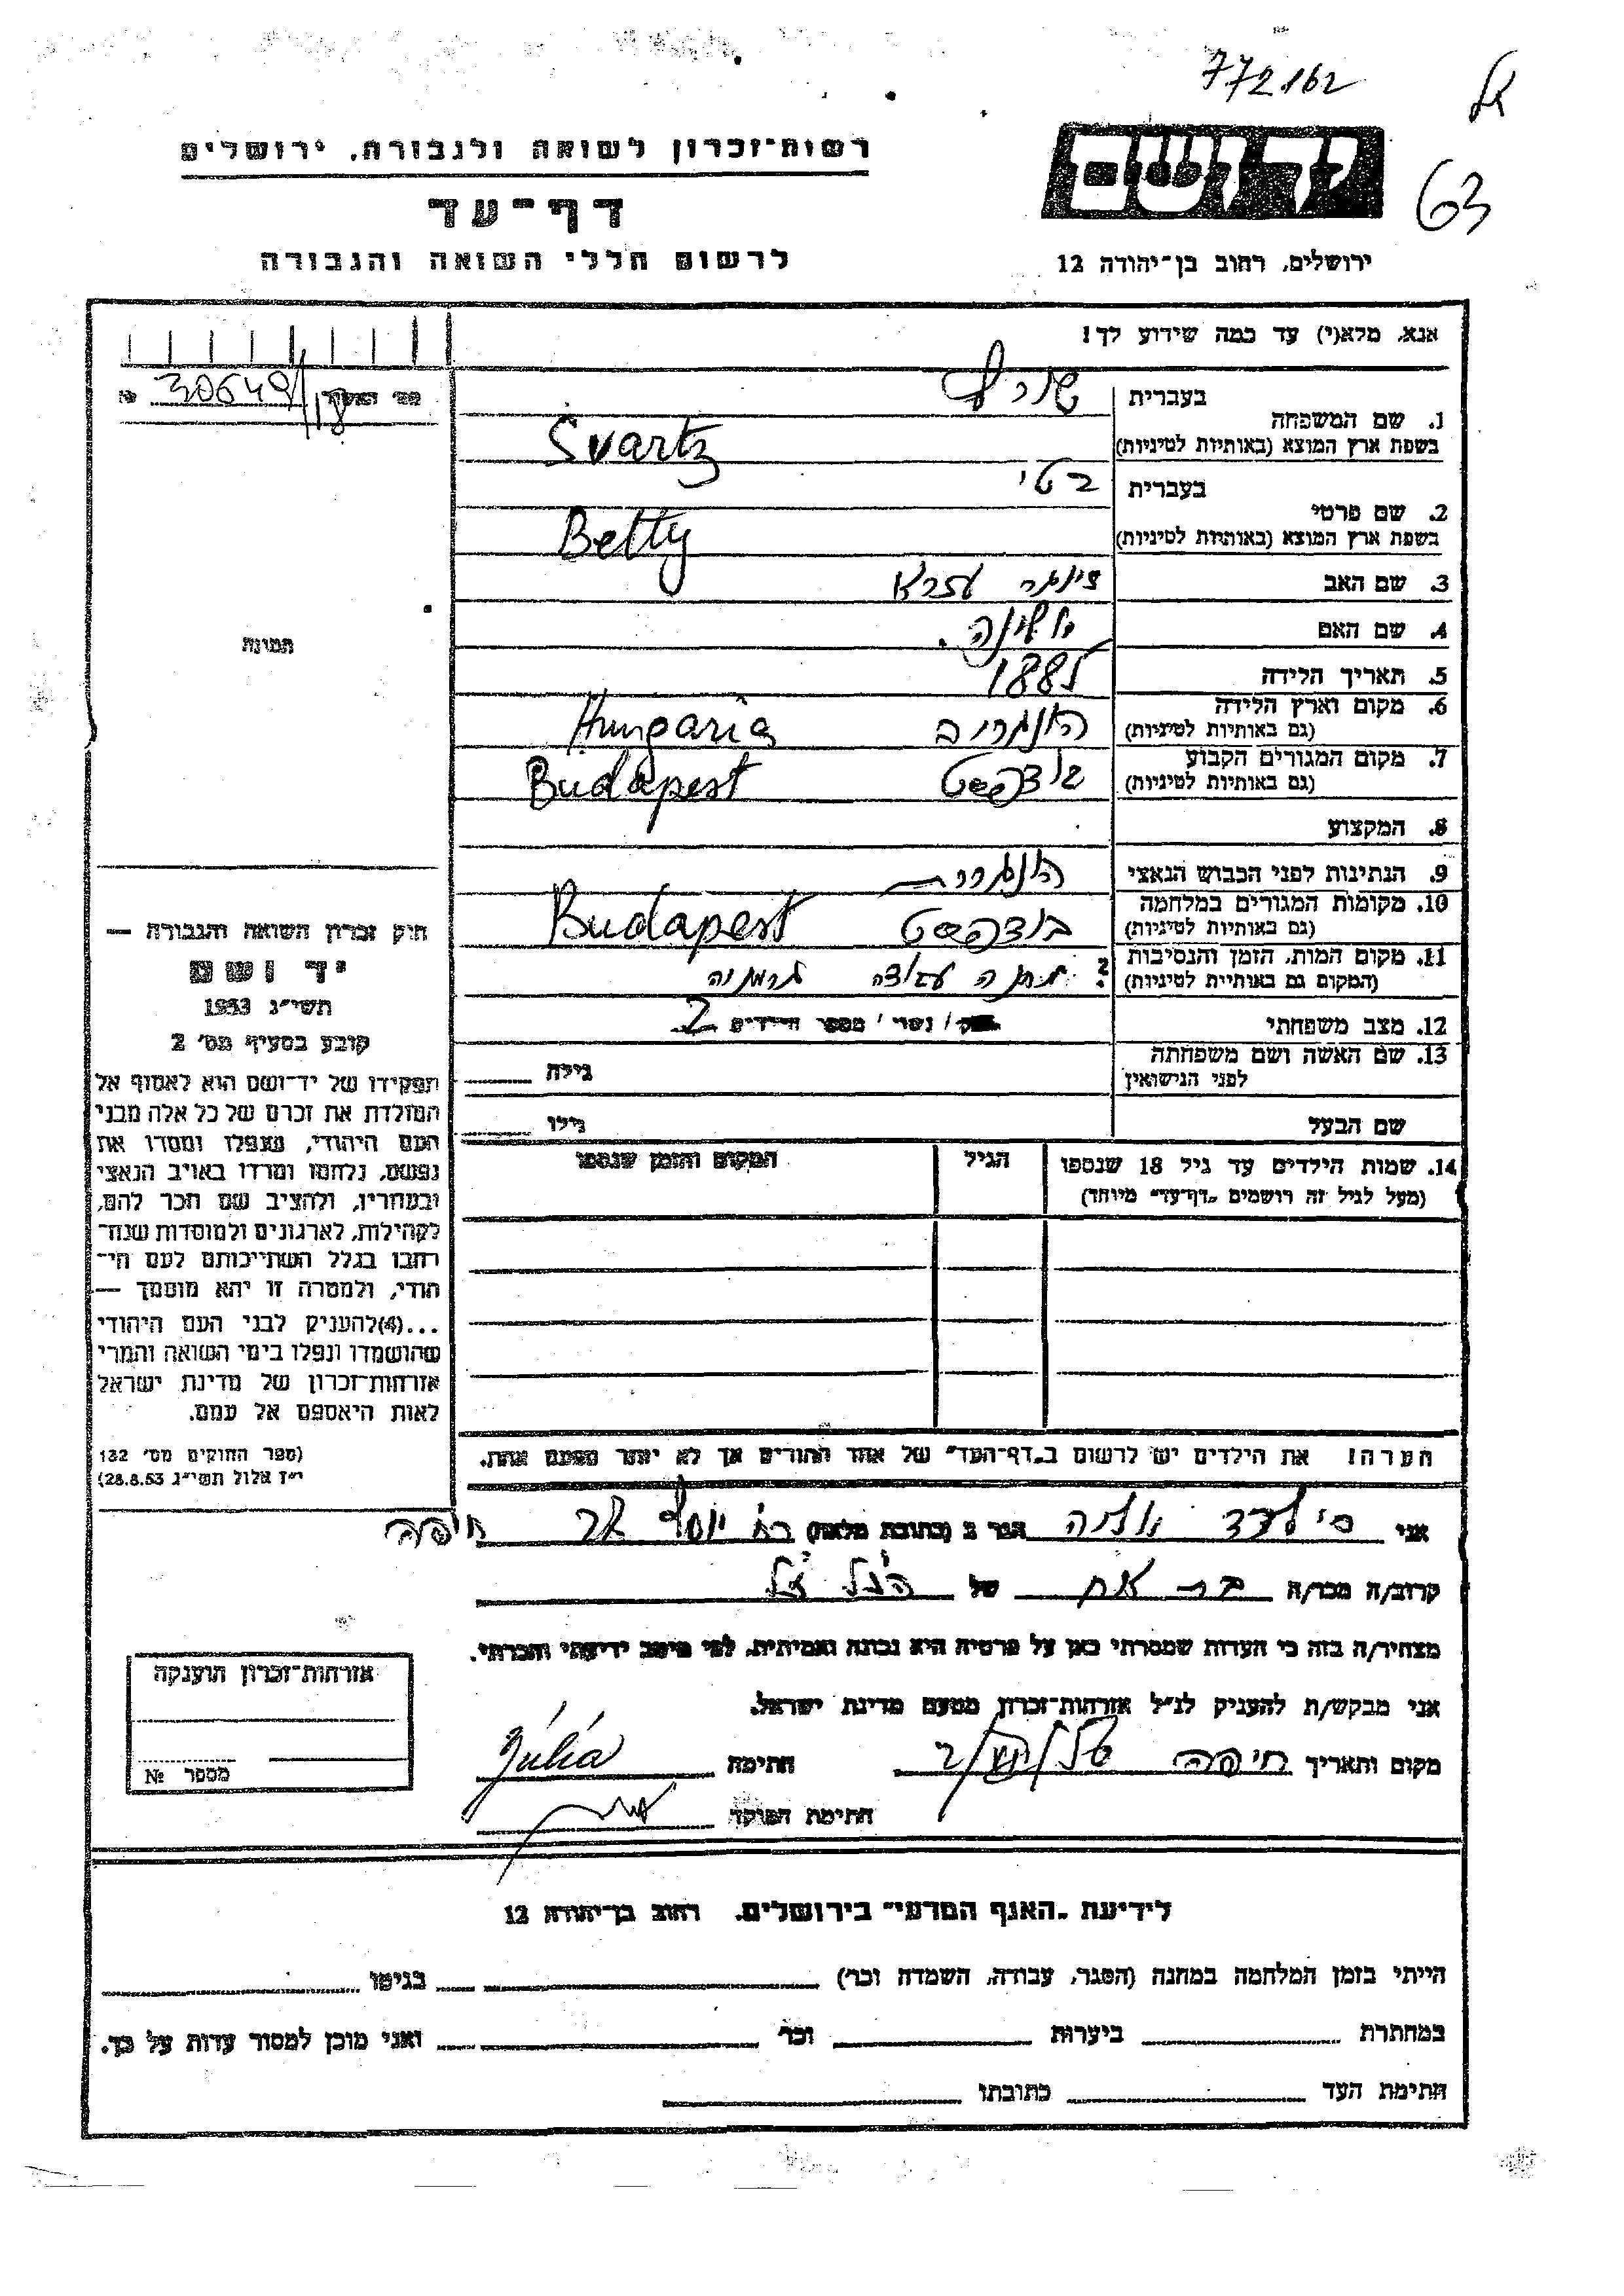 772162
63
יד ושם
ירושלים, רחוב בן־יהודה 12
רשות־זכרון לשואה ולגבורה, ירושלים
דף־עד
לרשום חללי השואה והגבורה
אנא, מלא(י) עד כמה שידוע לך!
מס׳ האשור 30649/18 №
תמונה
1. שם המשפחה בעברית שורץ
בשפת ארץ המוצא (באותיות לטיניות) Svartz
2. שם פרטי בעברית בטי
בשפת ארץ המוצא (באותיות לטיניות) Betty
3. שם האב
4. שם האם
5. תאריך הלידה 1885
6. מקום וארץ הלידה (גם באותיות לטיניות) הונגריה Hungaria
7. מקום המגורים הקבוע (גם באותיות לטיניות) בודפשט Budapest
8. המקצוע
9. הנתינות לפני הכבוש הנאצי הונגרית
10. מקומות המגורים במלחמה (גם באותיות לטיניות) בודפשט Budapest
11. מקום המות, הזמן והנסיבות (המקום גם באותיות לטיניות) ? מחנה עבודה גרמניה
12. מצב משפחתי / נשוי / מספר הילדים 2
13. שם האשה ושם משפחתה לפני הנישואין גילה
שם הבעל גילו
14. שמות הילדים עד גיל 18 שנספו (מעל לגיל זה רושמים „דף־עד״ מיוחד) הגיל המקום והזמן שנספו
הערה! את הילדים יש לרשום ב„דף־העד״ של אחד ההורים אך לא יותר מפעם אחת.
חוק זכרון השואה והגבורה —
יד ושם
תשי״ג 1953
קובע בסעיף מס׳ 2
תפקידו של יד־ושם הוא לאסוף אל
המולדת את זכרם של כל אלה מבני
העם היהודי, שנפלו ומסרו את
נפשם, נלחמו ומרדו באויב הנאצי
ובעוזריו, ולהציב שם וזכר להם,
לקהילות, לארגונים ולמוסדות שנח־
רבו בגלל השתייכותם לעם הי־
הודי, ולמטרה זו יהא מוסמך —
...(4)להעניק לבני העם היהודי
שהושמדו ונפלו בימי השואה והמרי
אזרחות־זכרון של מדינת ישראל
לאות היאספם אל עמם.
(ספר החוקים מס׳ 132
י״ז אלול תשי״ג 28.8.53)
אני הגר ב (כתובת מלאה) רח׳ יוסף חיפה
קרוב/ה מכר/ה של הנ״ל
מצהיר/ה בזה כי העדות שמסרתי כאן על פרטיה היא נכונה ואמיתית, לפי מיטב ידיעתי והכרתי.
אני מבקש/ת להעניק לנ״ל אזרחות־זכרון מטעם מדינת ישראל.
מקום ותאריך חיפה חתימה Júlia
חתימת הפוקד
אזרחות־זכרון הוענקה
מספר №
לידיעת „האגף המדעי״ בירושלים, רחוב בן־יהודה 12
הייתי בזמן המלחמה במחנה (הסגר, עבודה, השמדה וכו׳) בגיטו
במחתרת ביערות וכו׳ ואני מוכן למסור עדות על כך.
חתימת העד כתובתו